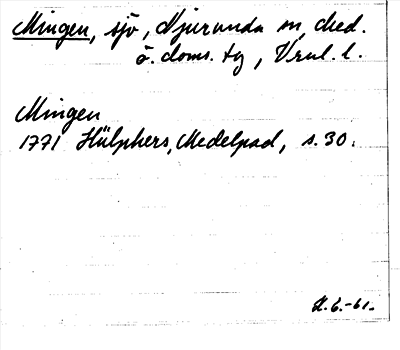 Mingen, sjö, Njurunda sn, Med.
ö. doms. tg, Vrnl. l.
Mingen
1771 Hülphers, Medelpad, s. 30.
H. G. -61.